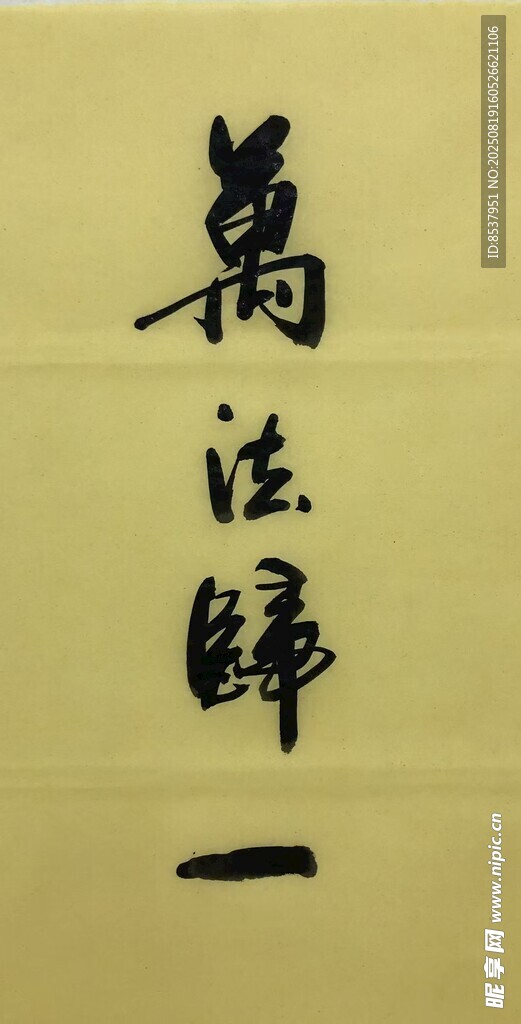 萬法歸一
ID:8537951 NO:20250819160526621106
昵享网 www.nipic.cn